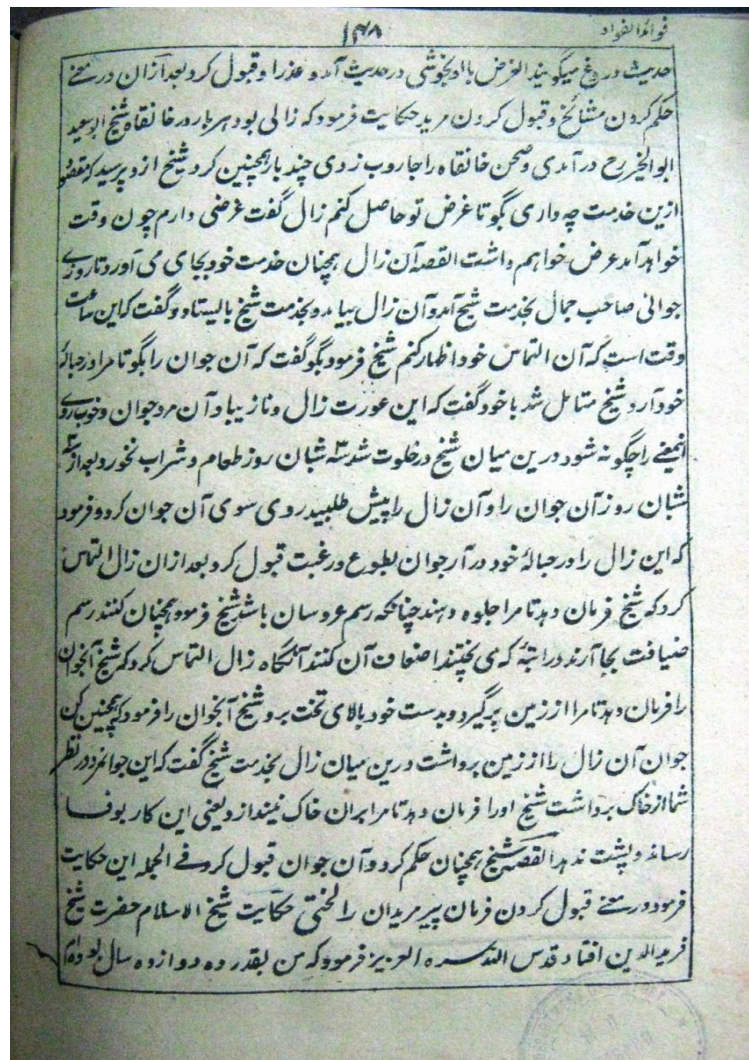 فوائد الفواد
۱۴۸
حدیث دروغ میگویند الغرض با او بخوشی در حدیث آمد و عذر او قبول کرد بعد ازان در معنے
حکم کردن مشائخ و قبول کردن مرید حکایت فرمود که زالی بود هر بار در خانقاه شیخ ابوسعید
ابوالخیر رح در آمدی و صحن خانقاه را جاروب زدی چند بار همچنین کرد شیخ ازو پرسید که مقصود
ازین خدمت چه داری بگو تا غرض تو حاصل کنم زال گفت غرضی دارم چون وقت
خواهد آمد عرض خواهم داشت القصه آن زال همچنان خدمت خود بجای می آورد تا روزے
جوانی صاحب جمال بخدمت شیخ آمد و آن زال بیامد و بخدمت شیخ بایستاد و گفت که این ساعت
وقت است که آن التماس خود اظهار کنم شیخ فرمود بگو گفت که آن جوان را بگو تا مرا در حبالهٔ
خود آرد شیخ متامل شد با خود گفت که این عورت زال و نازیبا و آن مرد جوان و خوب روے
اینمعنے را چگونه شود درین میان شیخ در خلوت شد سه شبان روز طعام و شراب نخورد بعد از سه
شبان روز آن جوان را و آن زال را پیش طلبید روی سوی آن جوان کرد و فرمود
که این زال را در حبالهٔ خود در آر جوان بطوع و رغبت قبول کرد بعد ازان زال التماس
کرد که شیخ فرمان دهد تا مرا جلوه دهند چنانکه رسم عروسان باشد شیخ فرمود همچنان کنند رسم
ضیافت بجا آرند و راتبهٔ که می پختند اضعاف آن کنند آنگاه زال التماس کرد که شیخ آنجوان
را فرمان دهد تا مرا از زمین برگیرد و بدست خود بالای تخت برد شیخ آنجوان را فرمود که همچنین کن
جوان آن زال را از زمین برداشت درین میان زال بخدمت شیخ گفت که این جوانمرد در نظر
شما از خاک برداشت شیخ او را فرمان دهد تا مرا بران خاک نیندازد یعنی این کار بوفا
رساند و پشت ندهد القصه شیخ همچنان حکم کرد و آن جوان قبول کرد فے الجمله این حکایت
فرمود در معنے قبول کردن فرمان پیر مریدان را لختی حکایت شیخ الاسلام حضرت شیخ
فرید الدین افتاد قدس الله سره العزیز فرمود که من بقدر ده دوازده سال بوده ام